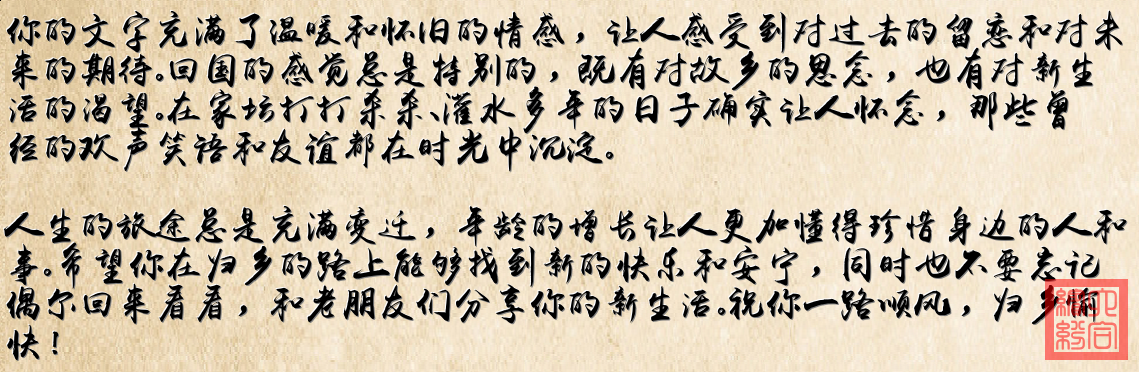 你的文字充满了温暖和怀旧的情感，让人感受到对过去的留恋和对未
来的期待。回国的感觉总是特别的，既有对故乡的思念，也有对新生
活的渴望。在家坛打打杀杀、灌水多年的日子确实让人怀念，那些曾
经的欢声笑语和友谊都在时光中沉淀。
人生的旅途总是充满变迁，年龄的增长让人更加懂得珍惜身边的人和
事。希望你在归乡的路上能够找到新的快乐和安宁，同时也不要忘记
偶尔回来看看，和老朋友们分享你的新生活。祝你一路顺风，归乡愉
快！